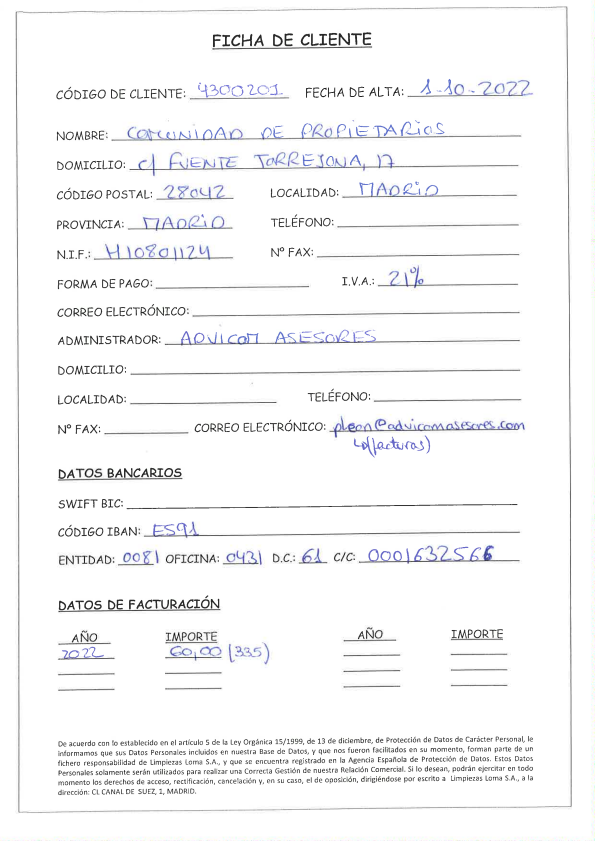 FICHA DE CLIENTE
CÓDIGO DE CLIENTE: 4300201 FECHA DE ALTA: 1-10-2022
NOMBRE: COMUNIDAD DE PROPIETARIOS
DOMICILIO: c/ FUENTE TORREJONA, 17
CÓDIGO POSTAL: 28042 LOCALIDAD: MADRID
PROVINCIA: MADRID TELÉFONO:
N.I.F.: H10801124 Nº FAX:
FORMA DE PAGO: I.V.A.: 21%
CORREO ELECTRÓNICO:
ADMINISTRADOR: ADVICOM ASESORES
DOMICILIO:
LOCALIDAD: TELÉFONO:
Nº FAX: CORREO ELECTRÓNICO: pleon@advicomasesores.com
(facturas)
DATOS BANCARIOS
SWIFT BIC:
CÓDIGO IBAN: ES91
ENTIDAD: 0081 OFICINA: 0431 D.C.: 61 C/C: 0001632566
DATOS DE FACTURACIÓN
AÑO IMPORTE AÑO IMPORTE
2022 60,00 (335)
De acuerdo con lo establecido en el artículo 5 de la Ley Orgánica 15/1999, de 13 de diciembre, de Protección de Datos de Carácter Personal, le
informamos que sus Datos Personales incluidos en nuestra Base de Datos, y que nos fueron facilitados en su momento, forman parte de un
fichero responsabilidad de Limpiezas Loma S.A., y que se encuentra registrado en la Agencia Española de Protección de Datos. Estos Datos
Personales solamente serán utilizados para realizar una Correcta Gestión de nuestra Relación Comercial. Si lo desean, podrán ejercitar en todo
momento los derechos de acceso, rectificación, cancelación y, en su caso, el de oposición, dirigiéndose por escrito a Limpiezas Loma S.A., a la
dirección: CL CANAL DE SUEZ, 1, MADRID.